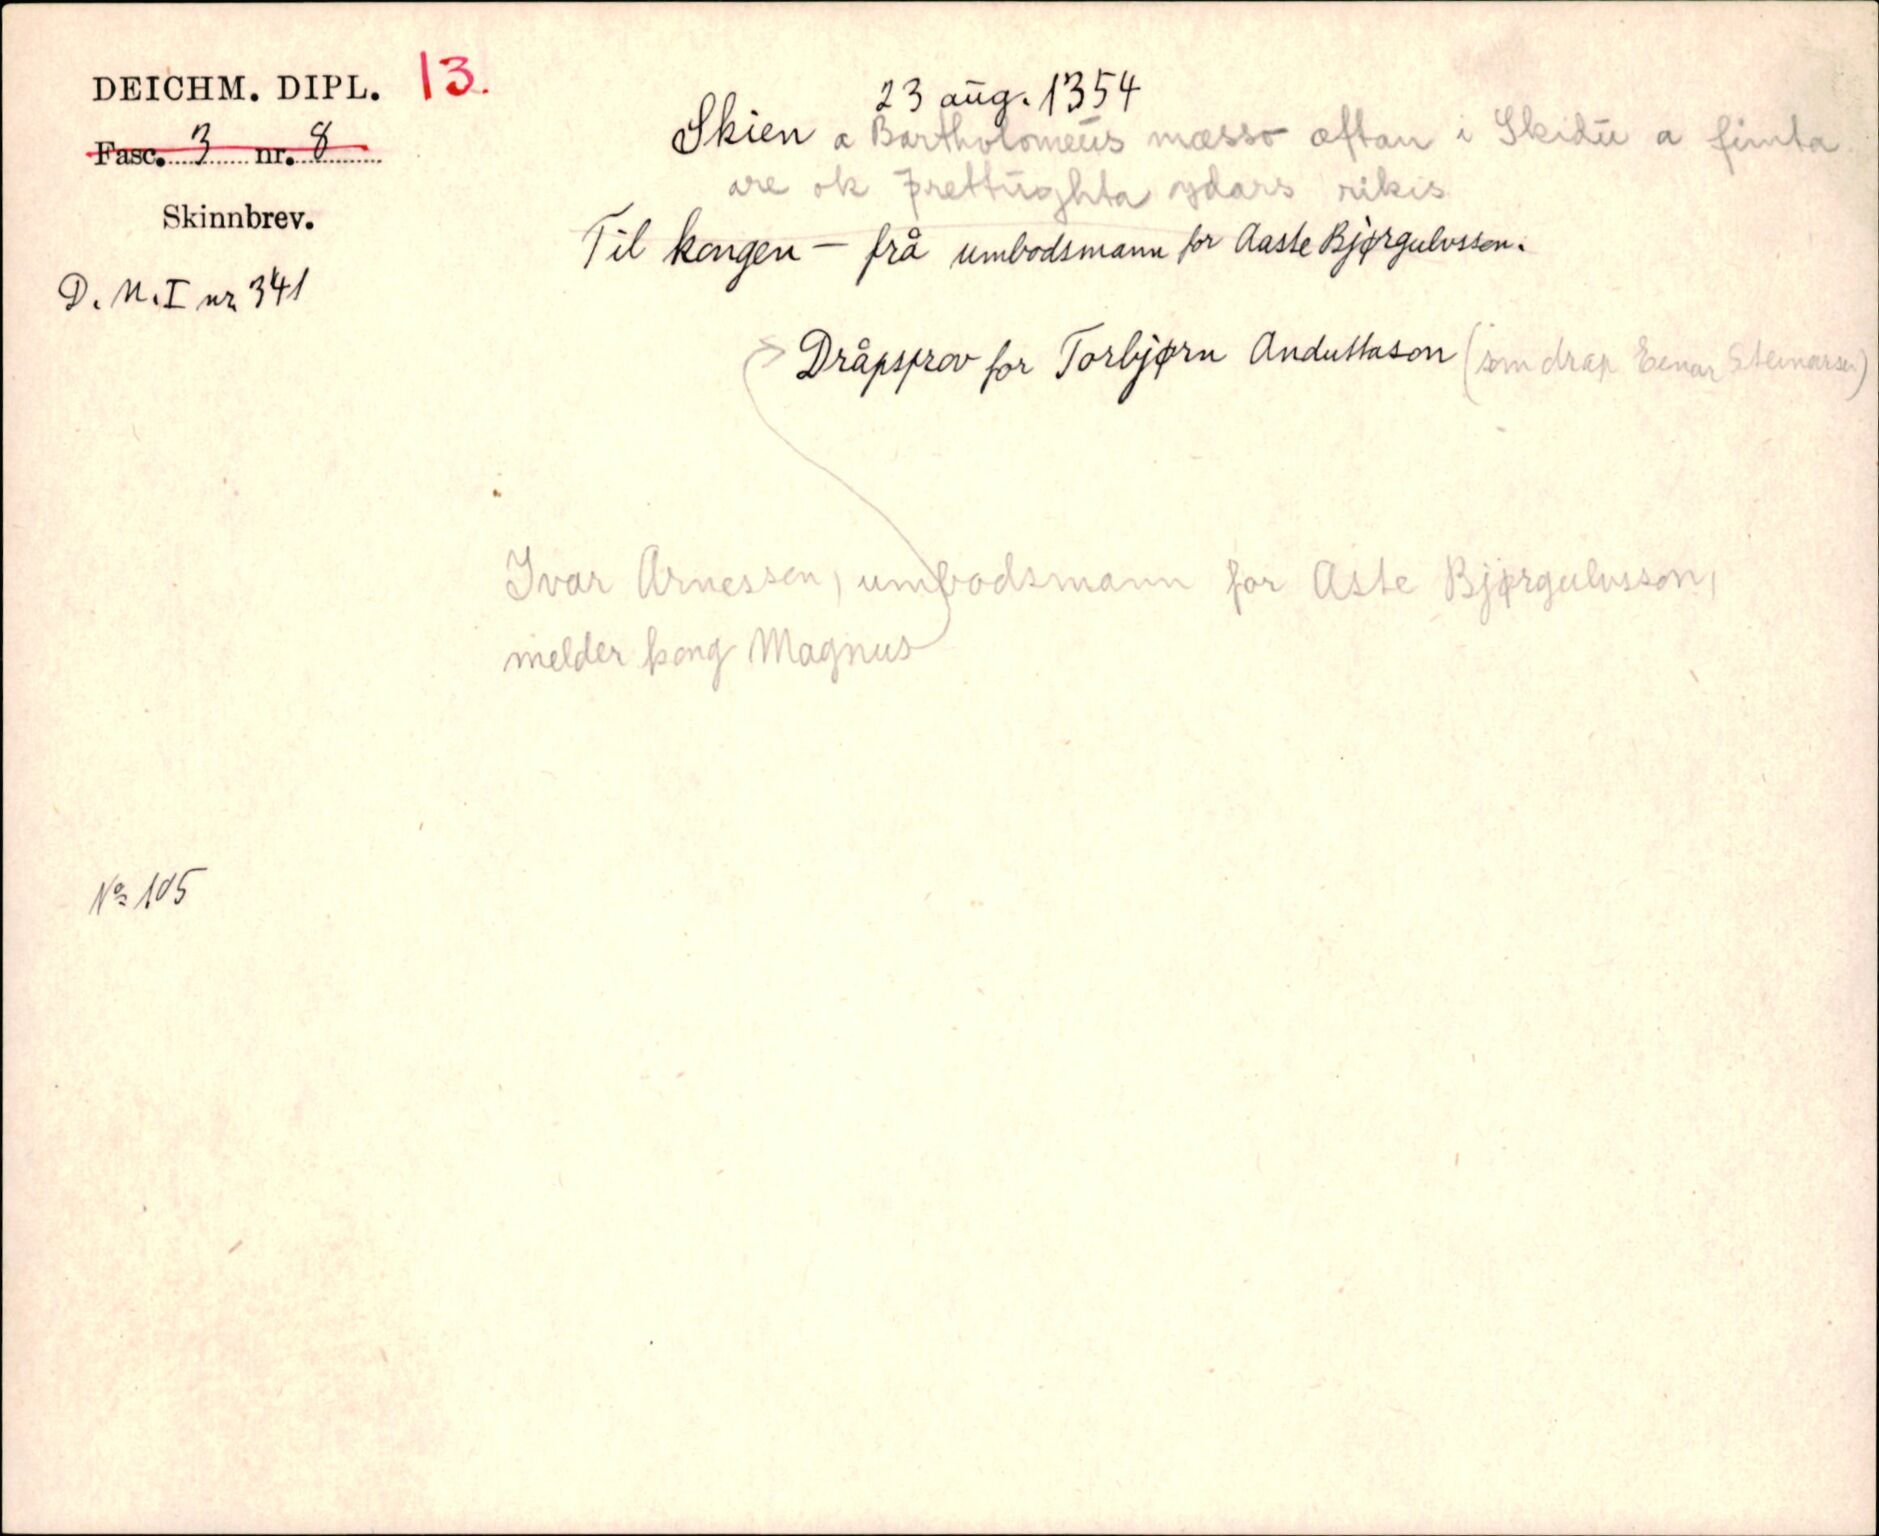 DEICHM. DIPL. 13.
Fasc. 3 nr. 8
Skinnbrev.
D. N. I nr 341
23 aug. 1354
Skien a Bartholomeus mæsso æftan i Skidu a fimta
are ok þrettughta ydars rikis
Til kongen — frå umbodsmann for Aaste Bjørgulvsson.
Dråpsprov for Torbjørn Anduttason (som drap Einar Steinarsen)
Ivar Arnesson, umbodsmann for Aste Bjørgulvsson,
melder kong Magnus
No 105